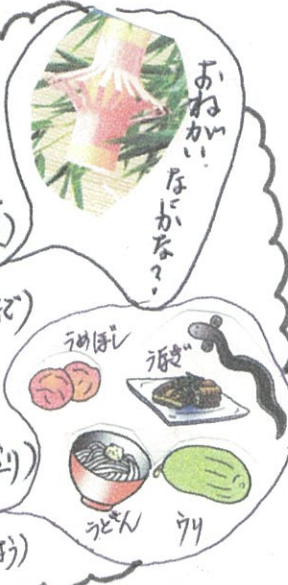 おねがい
なにかな?
うめぼし
うなぎ
うどん
ウリ